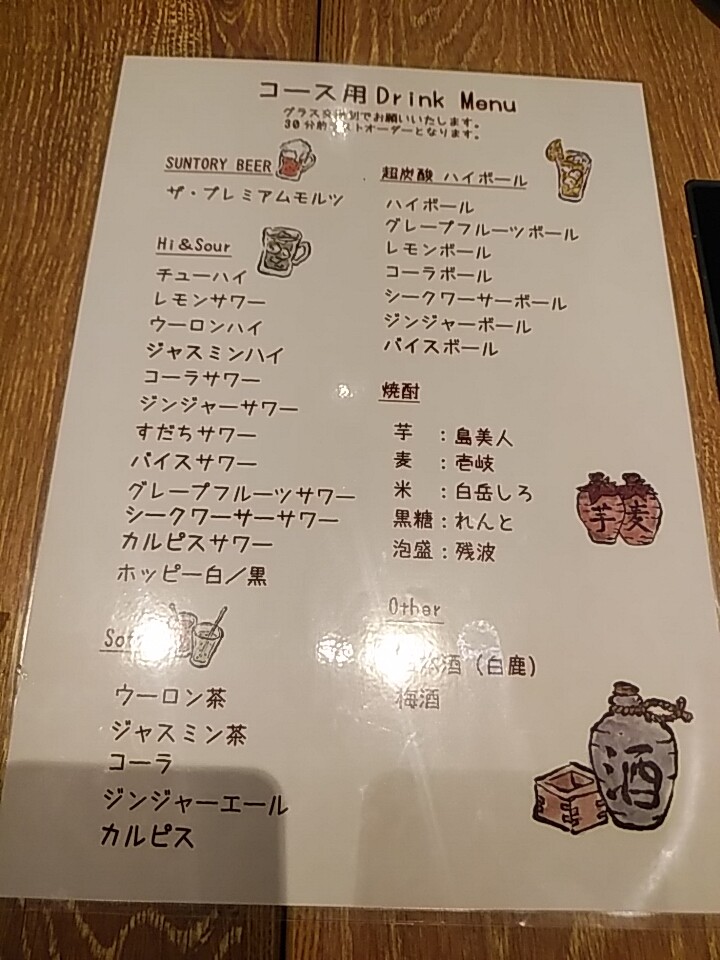 コース用 Drink Menu
グラス交換制でお願いいたします。
30分前ラストオーダーとなります。
SUNTORY BEER
ザ・プレミアムモルツ
Hi&Sour
チューハイ
レモンサワー
ウーロンハイ
ジャスミンハイ
コーラサワー
ジンジャーサワー
すだちサワー
バイスサワー
グレープフルーツサワー
シークワーサーサワー
カルピスサワー
ホッピー白/黒
ウーロン茶
ジャスミン茶
コーラ
ジンジャーエール
カルピス
超炭酸 ハイボール
ハイボール
グレープフルーツボール
レモンボール
コーラボール
シークワーサーボール
ジンジャーボール
バイスボール
焼酎
芋 :島美人
麦 :壱岐
米 :白岳しろ
黒糖:れんと
泡盛:残波
芋 麦
Other
酒(白鹿)
梅酒
酒